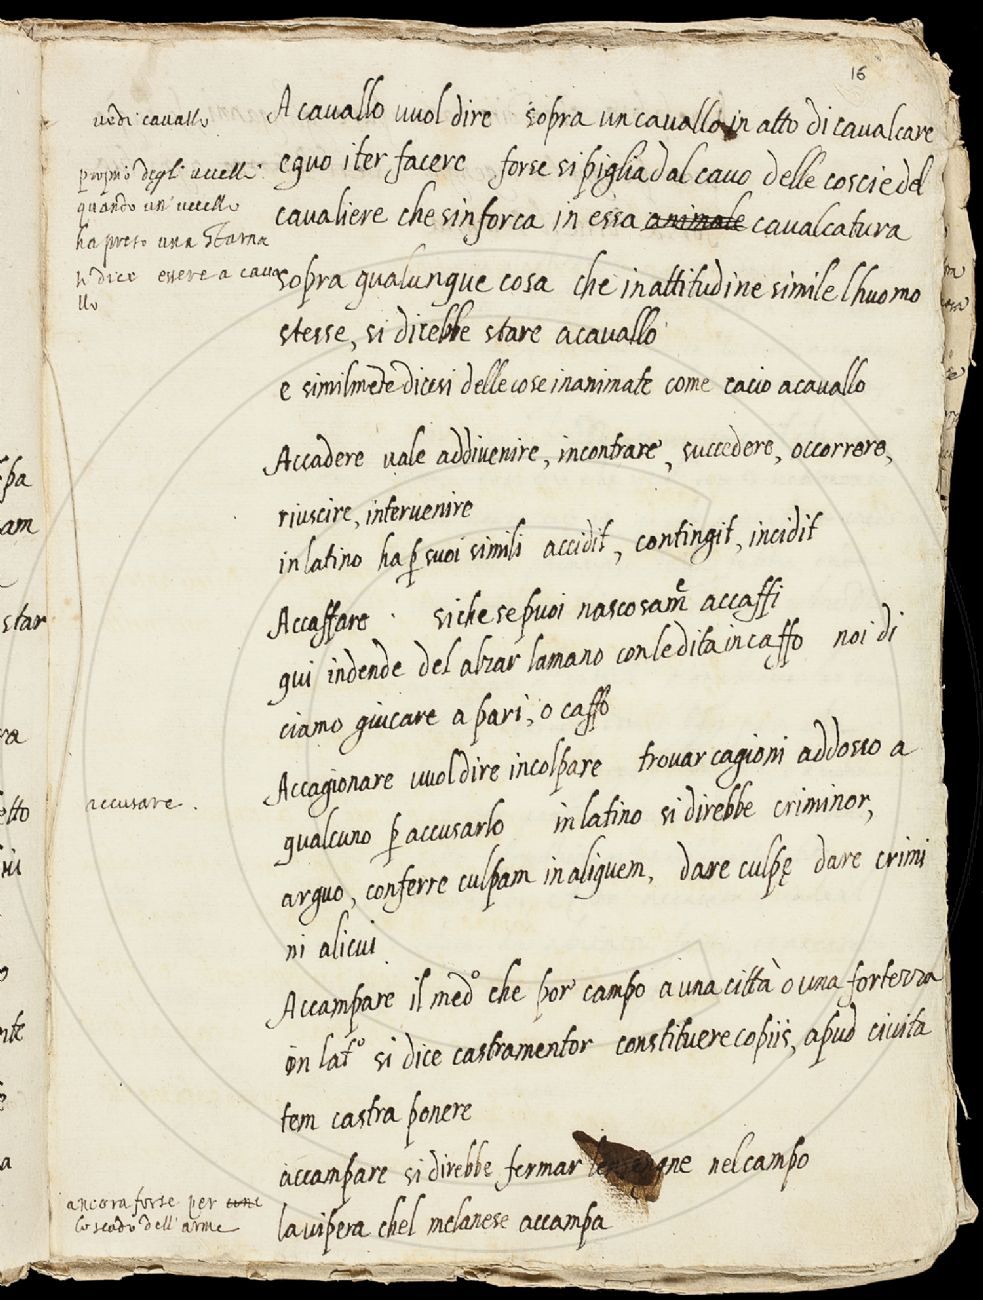 16
vedi cavallo
proprio degli uccelli
quando un' uccello
ha preso una starna
si dice essere a cava
llo
A cavallo vuol dire sopra un cavallo in atto di cavalcare
equo iter facere forse si piglia dal cavo delle coscie del
cavaliere che sinforca in essa animale cavalcatura
sopra qualunque cosa che in attitudine simile lhuomo
stesse, si direbbe stare a cavallo
e similmēte dicesi delle cose inanimate come cacio a cavallo
Accadere vale addivenire, incontrare, succedere, occorrere,
riuscire, intervenire
in latino ha ꝑ suoi simili accidit, contingit, incidit
Accaffare siche se puoi nascosamᵉ̃ accaffi
qui indende del alzar la mano con le dita in caffo noi di
ciamo giucare a pari, o caffo
accusare.
Accagionare vuol dire incolpare trovar cagioni addosso a
qualcuno ꝑ accusarlo in latino si direbbe criminor,
arguo, conferre culpam in aliquem, dare culpę dare crimi
ni alicui
Accampare il medº che por campo a una città o una fortezza
in latº si dice castramentor constituere copiis, apud civita
tem castra ponere
accampare si direbbe fermar nel campo
ancora forse per
lo scudo dell' arme
la vipera chel melanese accampa
spa
am
star
ra
etto
nte
a